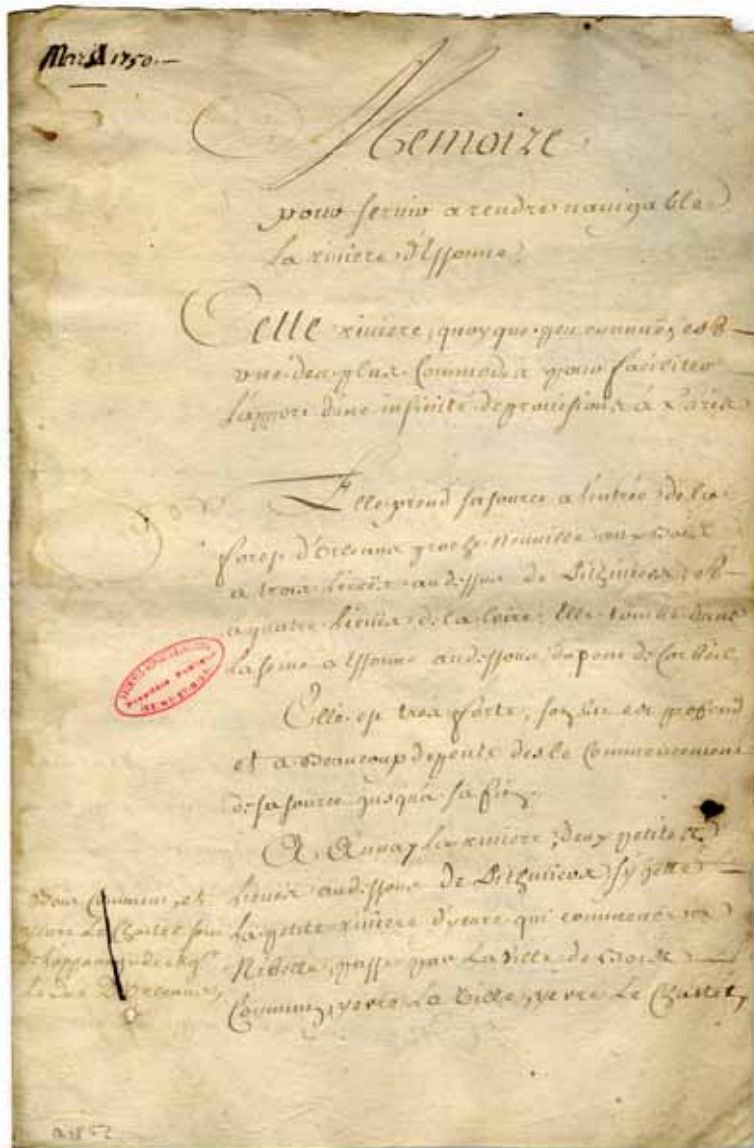 Mars 1750.
Memoire
pour servir a rendre navigable
La riviere d'Essonne
Cette riviere, quoyque peu connuë, est
une des plus Commodes pour faciliter
L'apport d'une infinité de provisions à Paris
Elle prend sa source a l'entrée de la
forest d'Orleans proche Neuville aux bois
a trois Lieuës au dessus de Pithiviers et
a quatre Lieuës de la Loire; Elle tombe dans
La seine a Essonne au dessous du pont de Corbeil
Elle est tres forte, son lit est profond
et a beaucoup de pente des le Commencement
de sa source jusqu'a sa fin.
A Aunay La riviere, deux petites
Lieuës au dessous de Pithiviers s'y jette
La petite riviere d'yevre qui commence a
Nibelle, passe par La ville de bois
Commun, yevre La Ville, yevre Le Chastel,
Bois Commun, et
yevre Le Chastel sont
de l'appanage de Mgr
Le Duc D'Orleans,